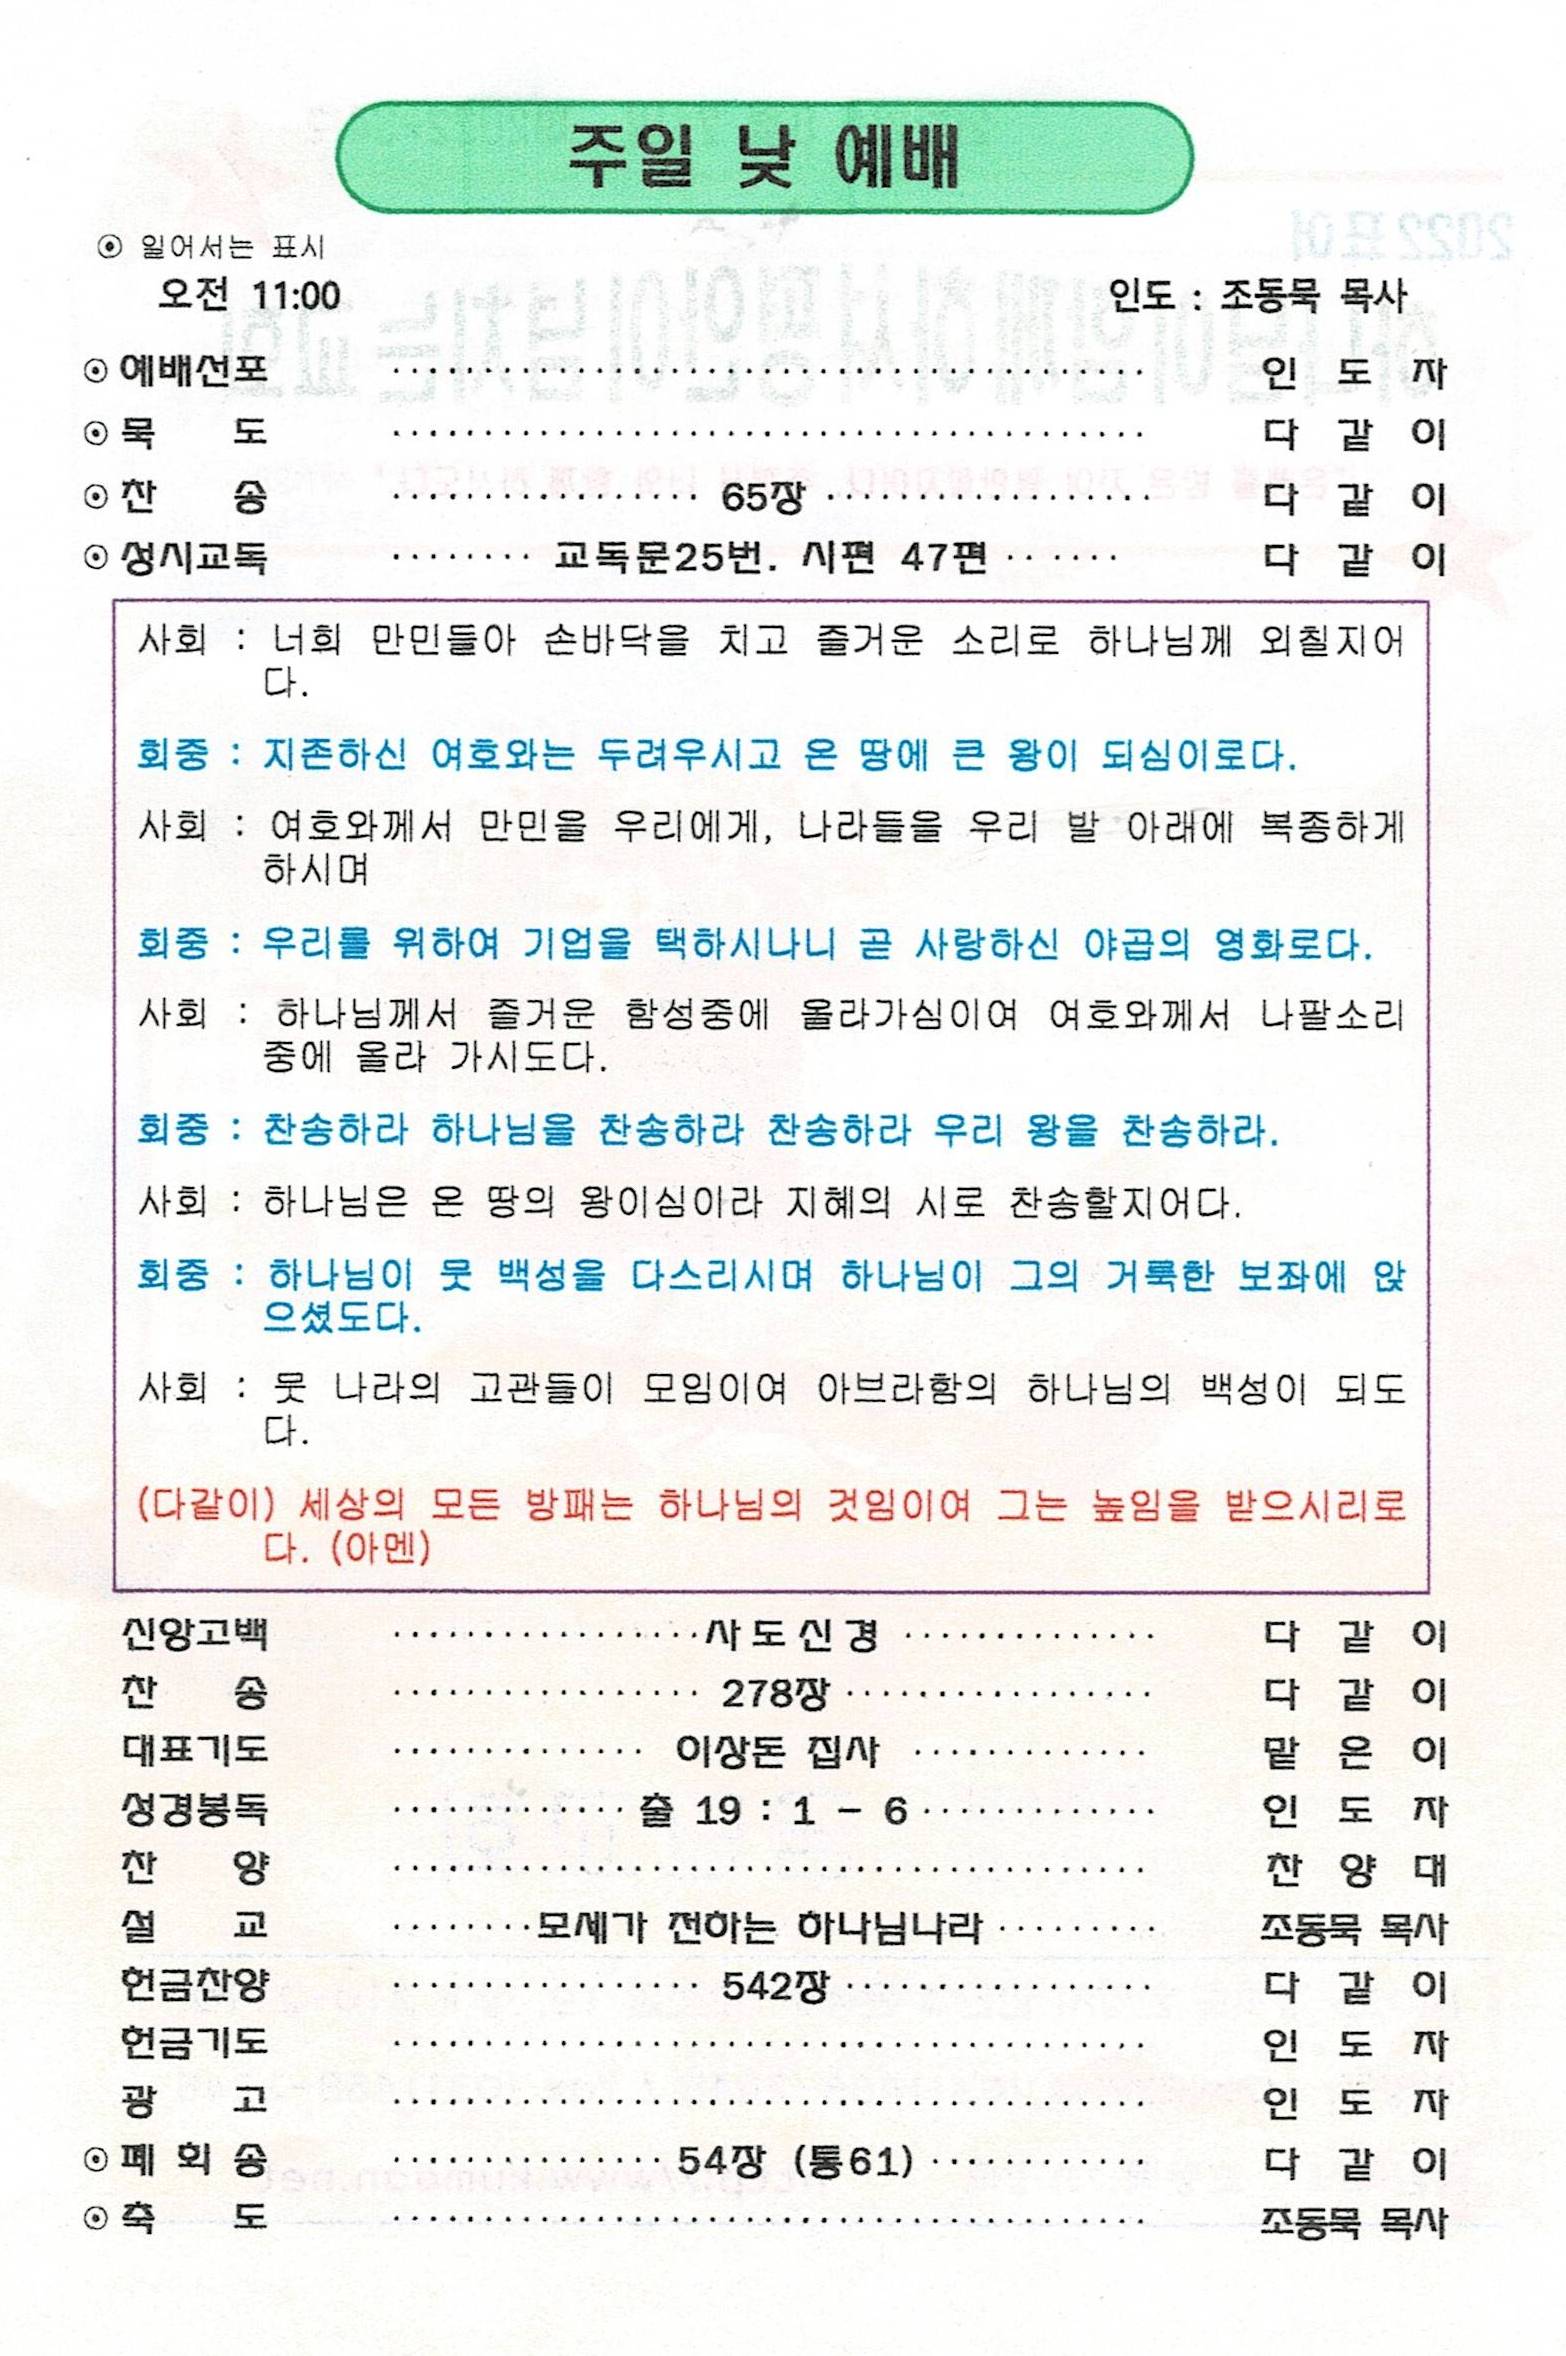 주일 낮 예배
⊙ 일어서는 표시
오전 11:00 인도 : 조동묵 목사
⊙ 예배선포 ········································· 인 도 자
⊙ 묵 도 ········································· 다 같 이
⊙ 찬 송 ················· 65장 ·················· 다 같 이
⊙ 성시교독 ········ 교독문25번. 시편 47편 ······ 다 같 이
사회 : 너희 만민들아 손바닥을 치고 즐거운 소리로 하나님께 외칠지어
다.
회중 : 지존하신 여호와는 두려우시고 온 땅에 큰 왕이 되심이로다.
사회 : 여호와께서 만민을 우리에게, 나라들을 우리 발 아래에 복종하게
하시며
회중 : 우리를 위하여 기업을 택하시나니 곧 사랑하신 야곱의 영화로다.
사회 : 하나님께서 즐거운 함성중에 올라가심이여 여호와께서 나팔소리
중에 올라 가시도다.
회중 : 찬송하라 하나님을 찬송하라 찬송하라 우리 왕을 찬송하라.
사회 : 하나님은 온 땅의 왕이심이라 지혜의 시로 찬송할지어다.
회중 : 하나님이 뭇 백성을 다스리시며 하나님이 그의 거룩한 보좌에 앉
으셨도다.
사회 : 뭇 나라의 고관들이 모임이여 아브라함의 하나님의 백성이 되도
다.
(다같이) 세상의 모든 방패는 하나님의 것임이여 그는 높임을 받으시리로
다. (아멘)
신앙고백 ·················사도신경 ·············· 다 같 이
찬 송 ················· 278장 ················· 다 같 이
대표기도 ·············· 이상돈 집사 ············· 맡 은 이
성경봉독 ·············출 19 : 1 - 6············· 인 도 자
찬 양 ········································· 찬 양 대
설 교 ········모세가 전하는 하나님나라 ········· 조동묵 목사
헌금찬양 ················· 542장 ················· 다 같 이
헌금기도 ········································· 인 도 자
광 고 ········································· 인 도 자
⊙ 폐 회 송 ··············· 54장 (통61) ············ 다 같 이
⊙ 축 도 ········································· 조동묵 목사